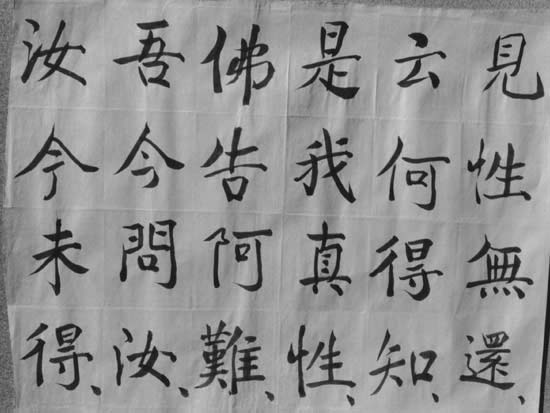 見性無還、
云何得知、
是我真性、
佛告阿難、
吾今問汝、
汝今未得、